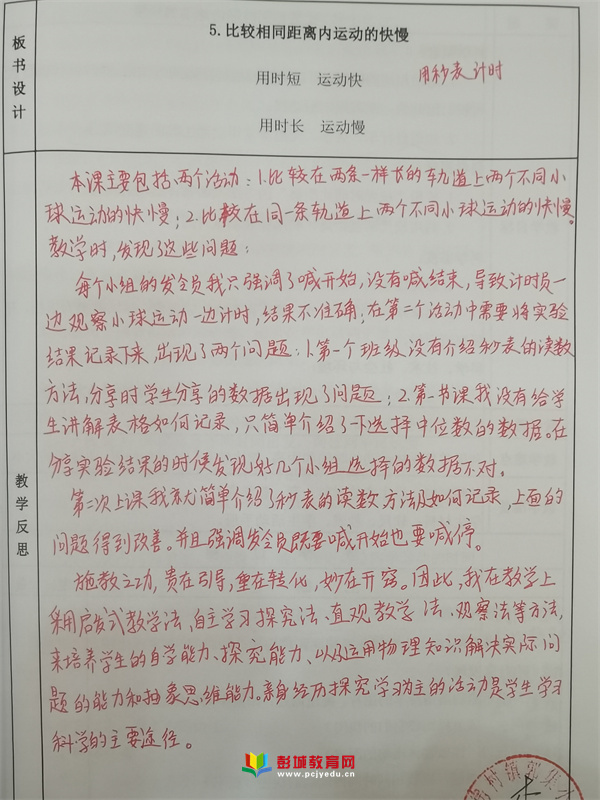 板书设计
5.比较相同距离内运动的快慢
用时短 运动快
用秒表计时
用时长 运动慢
教学反思
本课主要包括两个活动：1.比较在两条一样长的轨道上两个不同小
球运动的快慢；2.比较在同一条轨道上两个不同小球运动的快慢。
教学时，发现了这些问题：
每个小组的发令员我只强调了喊开始，没有喊结束，导致计时员一
边观察小球运动一边计时，结果不准确，在第二个活动中需要将实验
结果记录下来，出现了两个问题：1.第一个班级没有介绍秒表的读数
方法，分享时学生分享的数据出现了问题；2.第一节课我没有给学
生讲解表格如何记录，只简单介绍了一下选择中位数的数据。在
分享实验结果的时候发现好几个小组选择的数据不对。
第二次上课我就简单介绍了秒表的读数方法及如何记录，上面的
问题得到改善。并且强调发令员既要喊开始也要喊停。
施教之功，贵在引导，重在转化，妙在开窍。因此，我在教学上
采用启发式教学法、自主学习探究法、直观教学法、观察法等方法，
来培养学生的自学能力、探究能力、以及运用物理知识解决实际问
题的能力和抽象思维能力。亲身经历探究学习为主的活动是学生学习
科学的主要途径。
彭城教育网
www.pcjyedu.cn
村镇郭集